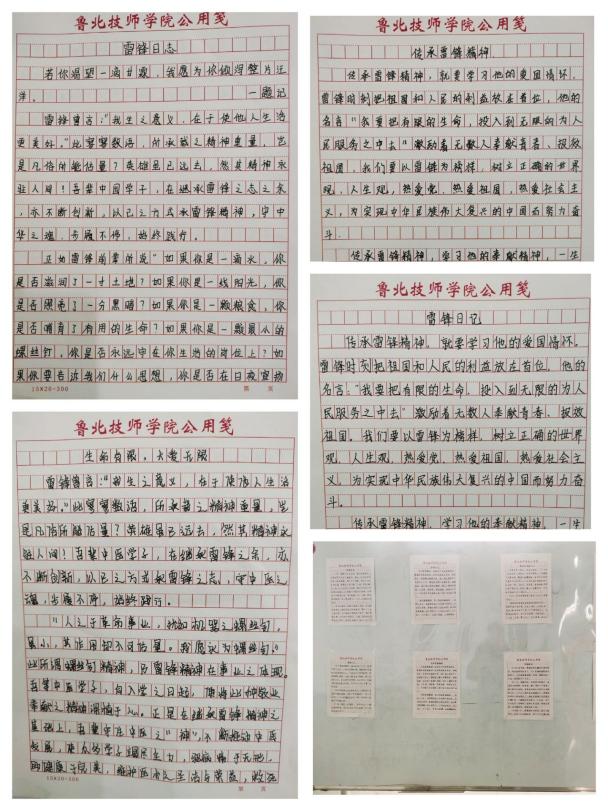 鲁北技师学院公用笺
雷锋日志
若你渴望一滴甘露，我愿为你倾洒整片汪
洋。——题记
雷锋曾言："我生之意义，在于使他人生活
更美好。"此寥寥数语，所承载之精神重量，岂
是凡俗所能估量？英雄虽已远去，然其精神永
驻人间！吾辈中国学子，在继承雷锋之志之余，
亦不断创新，以己之力去承雷锋精神，守中
华之魂，步履不停，始终践行。
正如雷锋前辈所说"如果你是一滴水，你
是否滋润了一寸土地？如果你是一线阳光，你
是否照亮了一分黑暗？如果你是一颗粮食，你
是否哺育了有用的生命？如果你是一颗最小的
螺丝钉，你是否永远守在你生活的岗位上？如
果你要告诉我们什么思想，你是否在日夜宣扬
15×20=300
第 页
鲁北技师学院公用笺
传承雷锋精神
传承雷锋精神，就要学习他的爱国情怀。
雷锋时刻把祖国和人民的利益放在首位，他的
名言"我要把有限的生命，投入到无限的为人
民服务之中去"激励着无数人奉献青春、报效
祖国，我们要以雷锋为榜样，树立正确的世界
观、人生观，热爱党、热爱祖国，热爱社会主
义，为实现中华民族伟大复兴的中国而努力奋
斗。
传承雷锋精神，学习他的奉献精神，一生
鲁北技师学院公用笺
雷锋日记
传承雷锋精神，就要学习他的爱国情怀。
雷锋时刻把祖国和人民的利益放在首位。他的
名言："我要把有限的生命，投入到无限的为人
民服务之中去"激励着无数人奉献青春、报效
祖国。我们要以雷锋为榜样，树立正确的世界
观、人生观，热爱党、热爱祖国，热爱社会主
义。为实现中华民族伟大复兴的中国而努力奋
斗。
传承雷锋精神，学习他的奉献精神。一生
鲁北技师学院公用笺
生命有限，大爱无限
雷锋曾言："我生之意义，在于使他人生活
更美好。"此寥寥数语，所承载之精神重量，岂
是凡俗所能估量？英雄虽已远去，然其精神永
驻人间！吾辈中医学子，在继承雷锋之余，亦
不断创新，以己之力去承雷锋之志，守中医之
魂，步履不停，始终践行。
"人之于革命事业，犹如机器之螺丝钉。
虽小，其作用却不可估量。我愿永为螺丝钉。"
此所谓螺丝钉精神，乃雷锋精神在事业之体现。
吾辈中医学子，自入学之日起，便将此种敬业
奉献之精神深植于心。正是在继承雷锋精神之
基础上，吾辈守住中医之"神"，不断推动中医
15×20=300
第 页